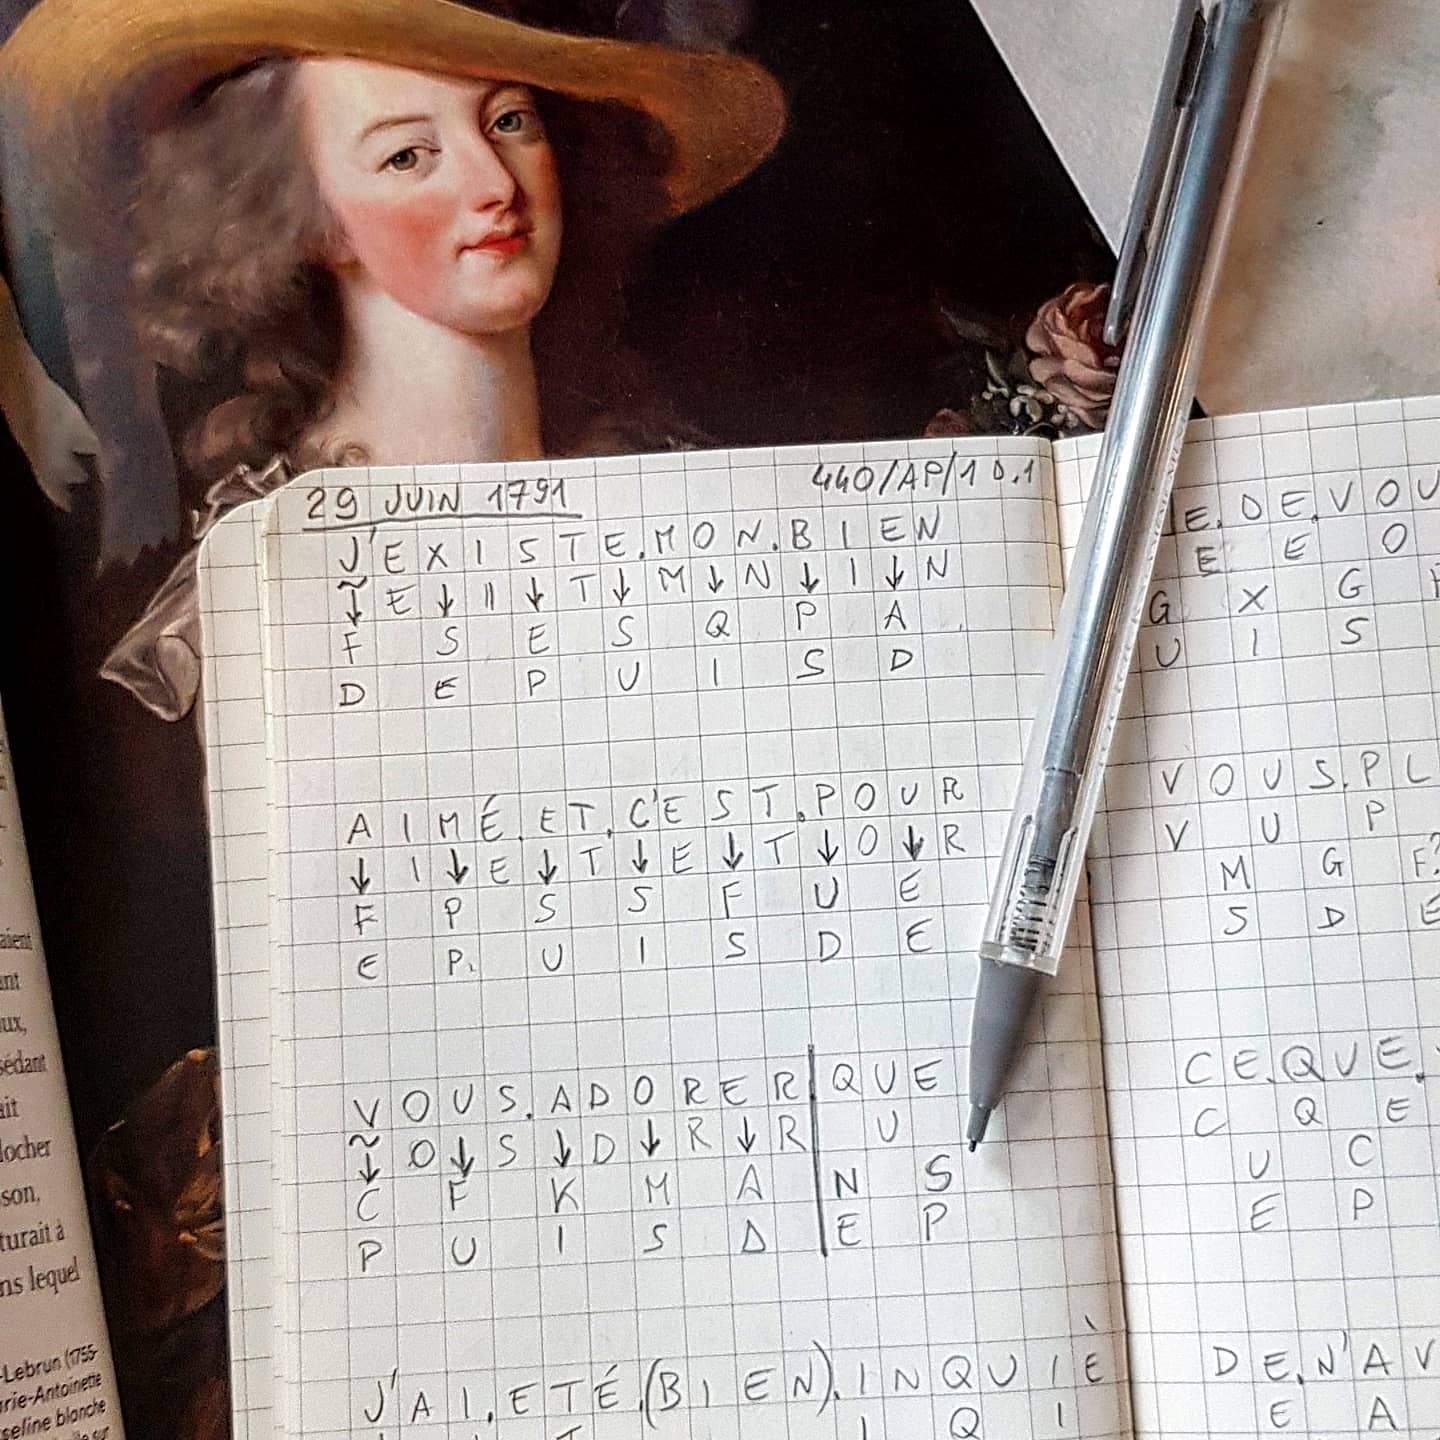 29 JUIN 1791
440/AP/1 D.1
J'EXISTE.MON.BIEN
~ E ↓ II ↓ T ↓ M ↓ N ↓ I ↓ N
↓ F S E S Q P A
D E P U I S D
AIMÉ.ET.C'EST.POUR
↓ I ↓ E ↓ T ↓ E ↓ T ↓ O ↓ R
F P S S F U E
E P. U I S D E
VOUS.ADORER QUE
~ O ↓ S ↓ D ↓ R ↓ R U
↓ C F K M A N S
P U I S D E P
J'AI.ETÉ.(BIEN).INQUIÈ
I Q I
E.DE.VOU
E E O
G X G
U I S
VOUS.PL
V U P
M G F?
S D E
CE.QUE.
C Q E
U C
E P
DE.N'AV
E A
aient
ant
ux,
sédant
ait
locher
son,
turait à
ns lequel
-Lebrun (1755-
rie-Antoinette
seline blanche